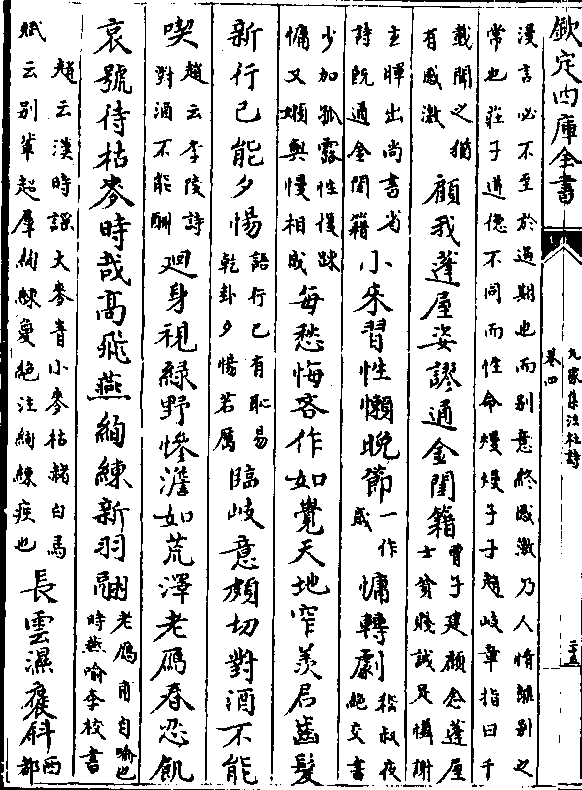 欽定四庫全書
九家集注杜詩
卷四
二十五
漫言必不至於過期也而別意終感激乃人情離別之
常也莊子道德不同而性命熳熳子子趙岐章指曰千
載聞之猶
有感激
顧我蓬屋姿謬通金閨籍
曹子建顔念蓬屋
士貧賤誠足憐謝
玄暉出尚書省
詩既通金閨籍
小來習性懶晚節
一作
感
慵轉劇
嵇叔夜
絶交書
少加孤露性復踈
慵又頻與慢相成
每愁悔吝作如覺天地窄羨君齒髮
新行已能夕惕
語行已有恥易
乾卦夕惕若厲
臨岐意頗切對酒不能
喫
趙云李陵詩
對酒不能酬
廻身視綠野慘澹如荒澤老鴈春忍飢
哀號待枯麥時哉高飛燕絢練新羽翮
老鴈甫自喻也
時燕喻李校書
趙云漢時謡大麥青小麥枯赭白馬
賦云別輩超羣絢練敻絶注絢練疾也
長雲濕褒斜
西
都